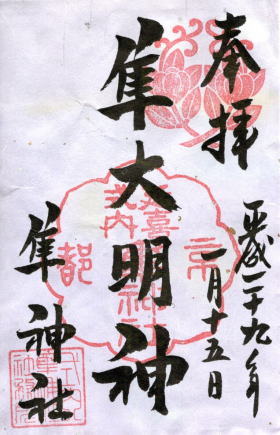 奉拝
平成二十九年
一月十五日
隼大明神
延喜
式内
帝
都
神社
隼神社